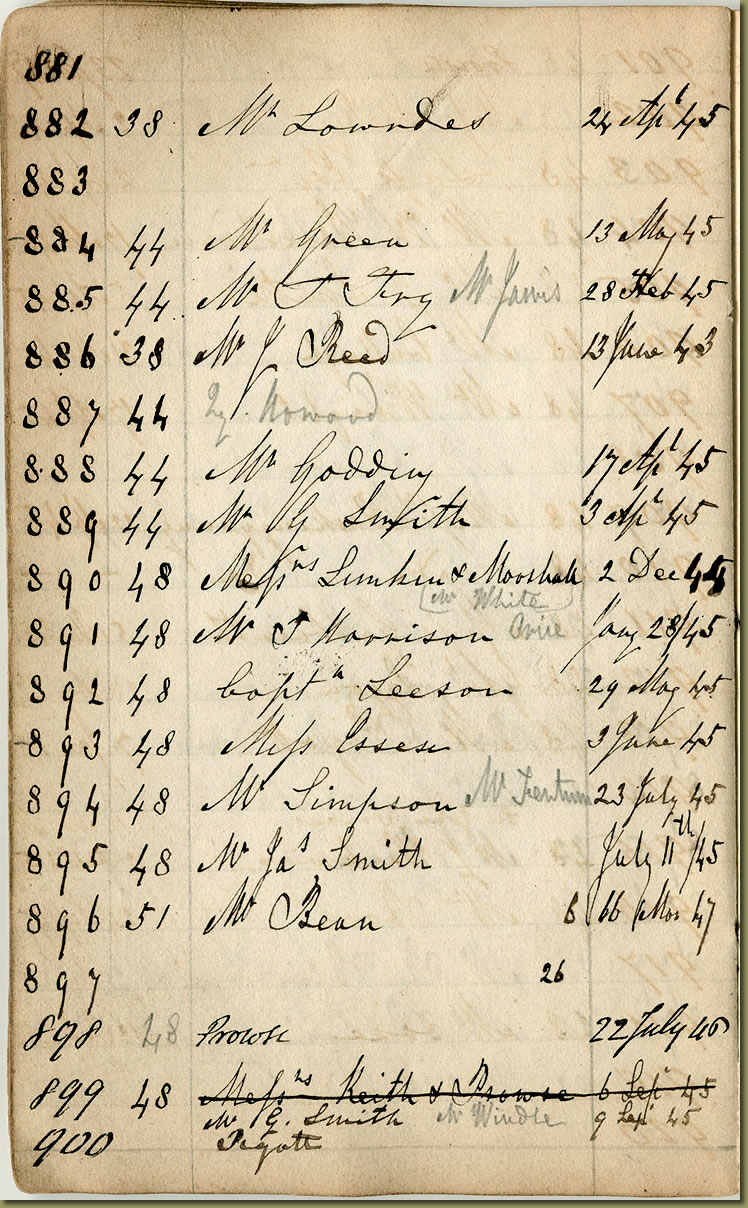 881
882 38 Mr Lowndes 24 Apl 45
883
884 44 Mr Green 13 May 45
885 44 Mr T Fry Mr Jarvis 28 Feb 45
886 38 Mr J Reed 13 June 43
887 44 Howood
888 44 Mr Godding 17 Apl 45
889 44 Mr G Smith 3 Apl 45
890 48 Messrs & 2 Dec 44
(Mr White)
891 48 Mr T Harrison Price Jany 28/45
892 48 Captn Leeson 29 May 45
893 48 Mess Essex 3 June 45
894 48 Mr Simpson Mr 23 July 45
895 48 Mr Jas Smith July 11th/45
896 51 Mr Bean 6 Mar 47
897 26
898 48 Prowse 22 July 46
899 48 Messrs Keith & Prowse 6 Sept 45
Mr G. Smith Mr Windle 9 Sept 45
900 Pigott